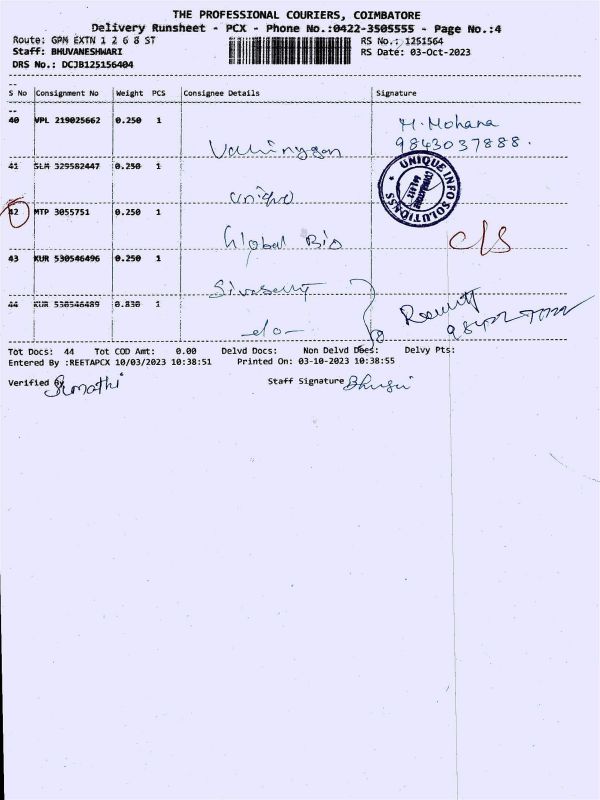 THE PROFESSIONAL COURIERS, COIMBATORE
Delivery Runsheet - PCX - Phone No.:0422-3505555 - Page No.:4
Route: GPM EXTN 1 2 6 8 ST RS No.: 1251564
Staff: BHUVANESHWARI RS Date: 03-Oct-2023
DRS No.: DCJB125156404
S No Consignment No Weight PCS Consignee Details Signature
40 VPL 219025662 0.250 1 M. Mohana
9843037888.
41 SLM 329582447 0.250 1
UNIQUE INFO SOLUTIONSS
COIMBATORE
641 012
unique
42 MTP 3055751 0.250 1
Global Bio c/s
43 KUR 530546496 0.250 1
44 KUR 530546489 0.830 1
-do-
Tot Docs: 44 Tot COD Amt: 0.00 Delvd Docs: Non Delvd Docs: Delvy Pts:
Entered By :REETAPCX 10/03/2023 10:38:51 Printed On: 03-10-2023 10:38:55
Verified By Staff Signature